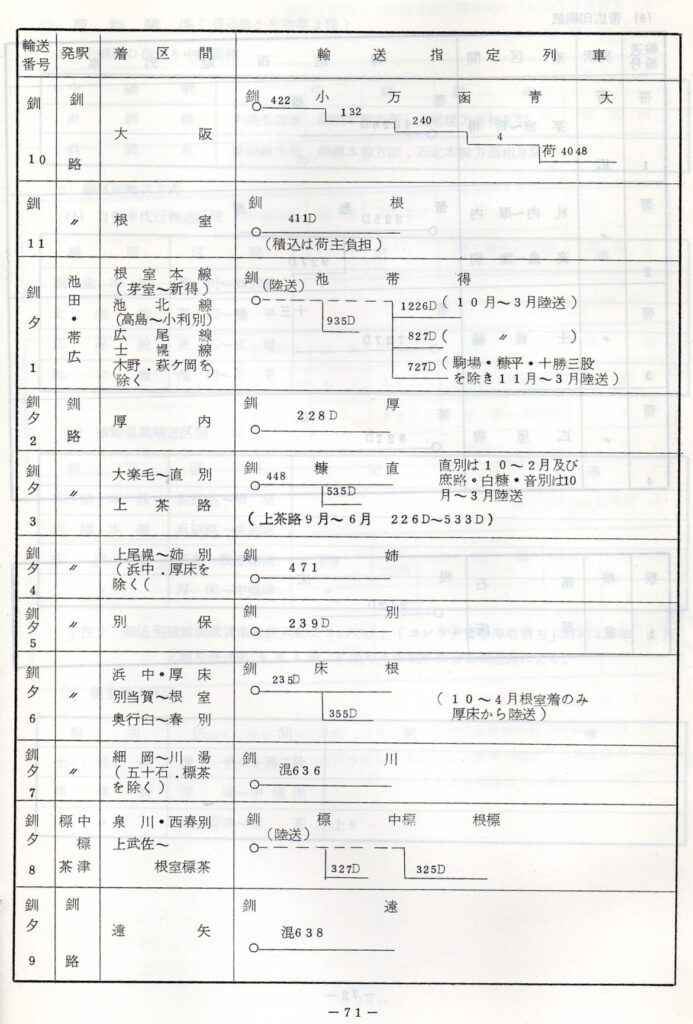 輸送番号 発駅 着区間 輸送指定列車
釧 10 釧路 大阪 釧 小 万 函 青 大
422
132
240
4
荷4048
釧 11 〃 根室 釧 根
411D
(積込は荷主負担)
釧夕 1 池田・帯広
根室本線
(芽室~新得)
池北線
(高島~小利別)
広尾線
士幌線
木野.萩ケ岡を
除く
釧 池 帯 得
(陸送)
935D
1226D (10月~3月陸送)
827D ( 〃 )
727D (駒場・糠平・十勝三股
を除き11月~3月陸送)
釧夕 2 釧路 厚内 釧 厚
228D
釧夕 3 〃 大楽毛~直別
上茶路
釧 糠 直
448
535D
直別は10~2月及び
庶路・白糠・音別は10
月~3月陸送
(上茶路9月~6月 226D~533D)
釧夕 4 〃 上尾幌~姉別
(浜中.厚床を
除く(
釧 姉
471
釧夕5 〃 別保 釧 別
239D
釧夕 6 〃 浜中・厚床
別当賀~根室
奥行臼~春別
釧 床 根
235D
355D
(10~4月根室着のみ
厚床から陸送)
釧夕7 〃 細岡~川湯
(五十石.標茶
を除く)
釧 川
混636
釧夕 8 標茶 中標津
泉川・西春別
上武佐~
根室標茶
釧 標 中標 根標
(陸送)
327D
325D
釧夕 9 釧路 遠矢 釧 遠
混638
-71-